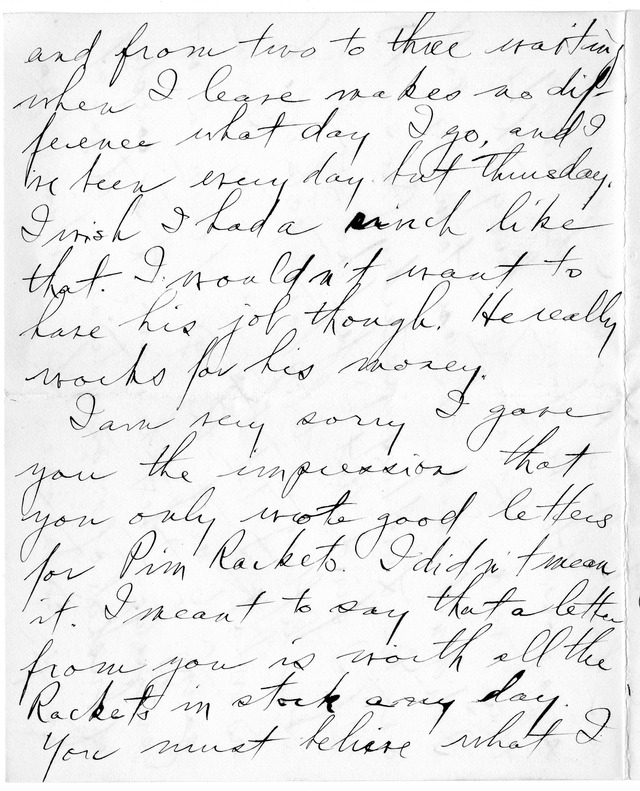 and from two to three waiting
when I leave makes no dif-
ference what day I go, and I
've been every day but Thursday.
I wish I had a cinch like
that. I wouldn't want to
have his job though. He really
works for his money.
I am very sorry I gave
you the impression that
you only wrote good letters
for Pim Rackets. I didn't mean
it. I meant to say that a letter
from you is worth all the
Rackets in stock any day.
You must believe what I